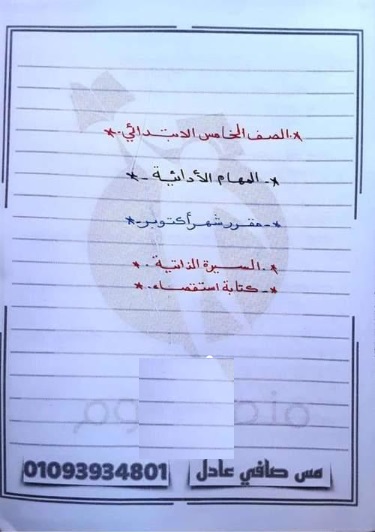 *. الصف الخامس الابتدائي. *
*ـ المهام الأدائية ـ *
*ـ مقرر شهر أكتوبر ـ *
*. السيرة الذاتية. *
*ـ كتابة استقصاء. *
مس صافي عادل 01093934801